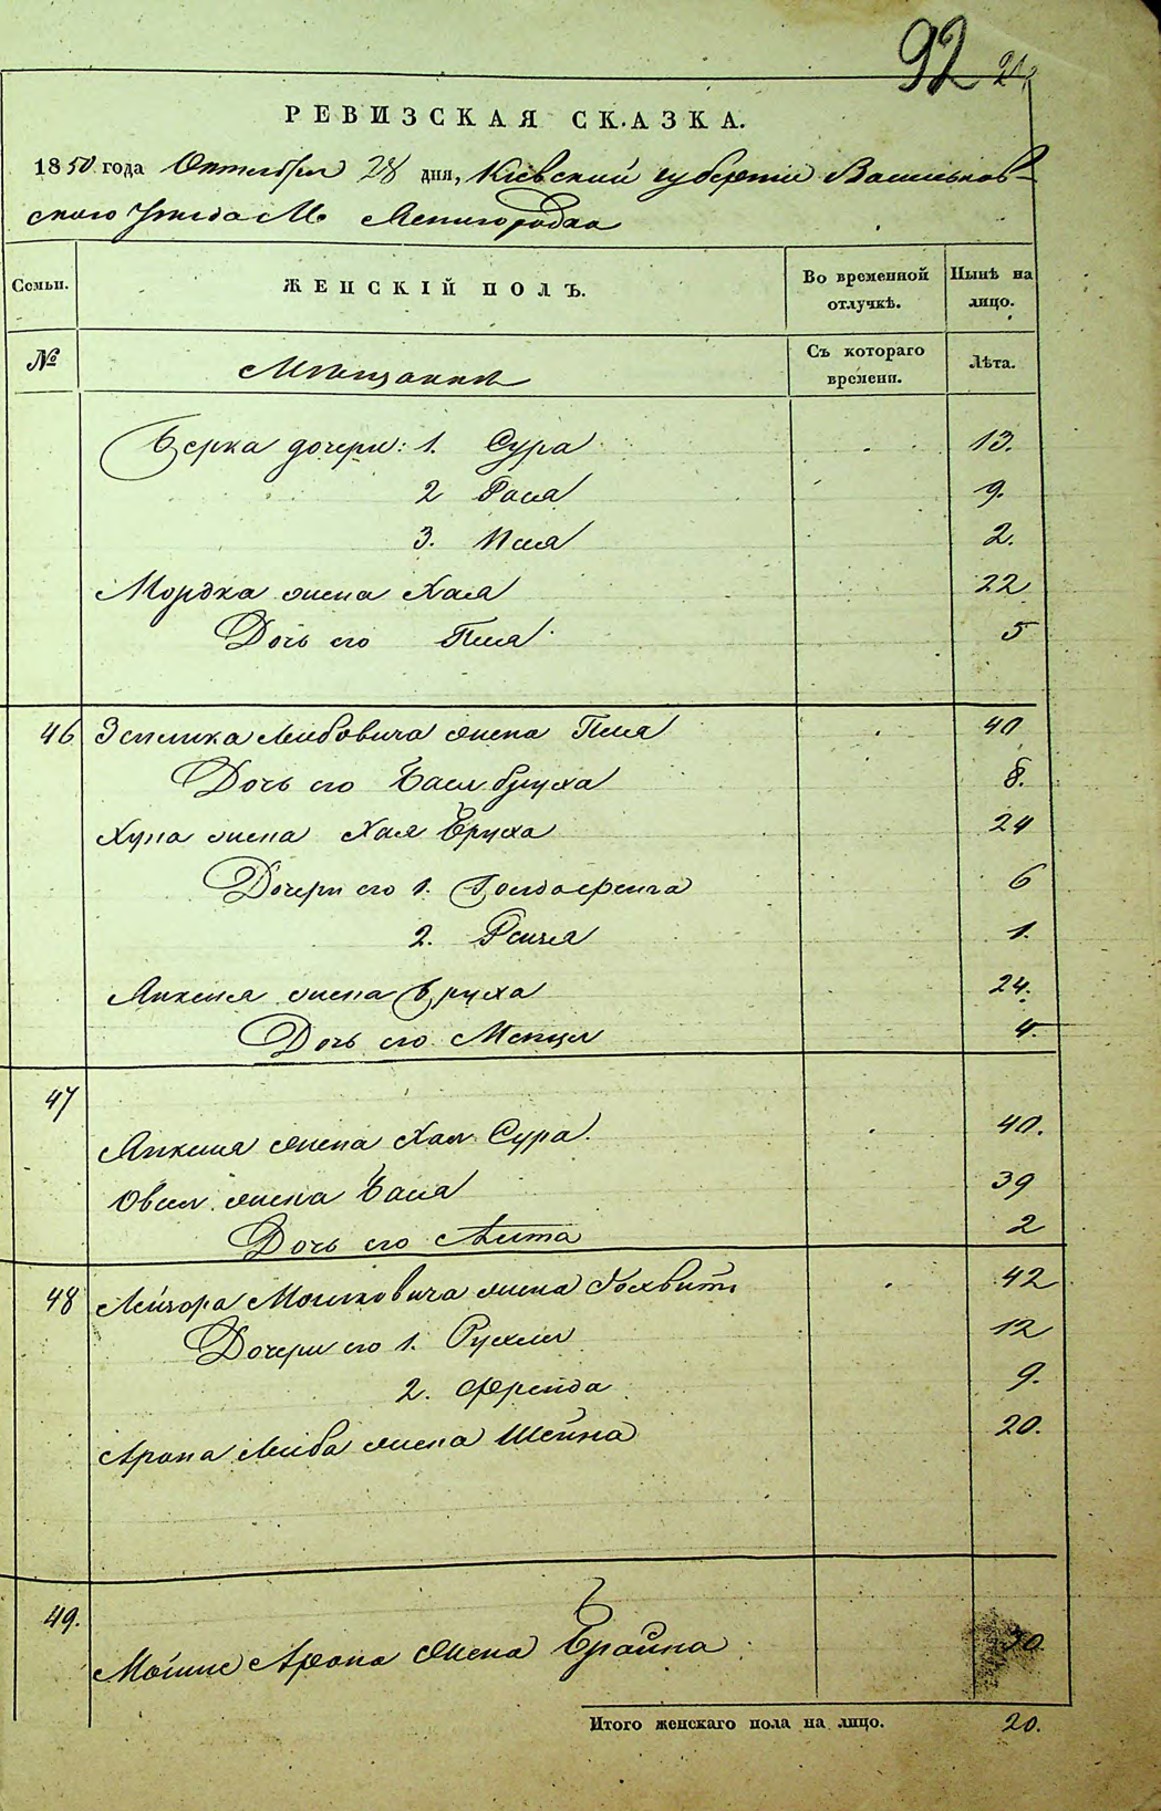 92
РЕВИЗСКАЯ СКАЗКА.
1850 года Октября 28 дня, Кіевской губерніи Васильков-
ского Уезда М.
Семьи. ЖЕНСКІЙ ПОЛЪ. Во временной отлучкѣ. Нынѣ на лицо.
№ Мещанки Съ котораго времени. Лѣта.
Берка дочери: 1. Сура 13.
2 Рася 9.
3. 2.
Мордка жена Хая 22
Дочь его Песя 5
46 Лейбовича жена Песя 40
Дочь его Бася Бруха 8.
жена Хая Бруха 24
Дочери его 1. 6
2. 1.
Янкеля жена Бруха 24.
Дочь его 4.
47
Янкеля жена Хая Сура. 40.
Овсея жена Бася 39
Дочь его 2
48 Лейзора Мошковича жена 42
Дочери его 1. Рухля 12
2. Фрейда 9.
Арона Лейба жена Шейна 20.
49.
Мошие Арона жена Брайна 30
Итого женскаго пола на лицо. 20.